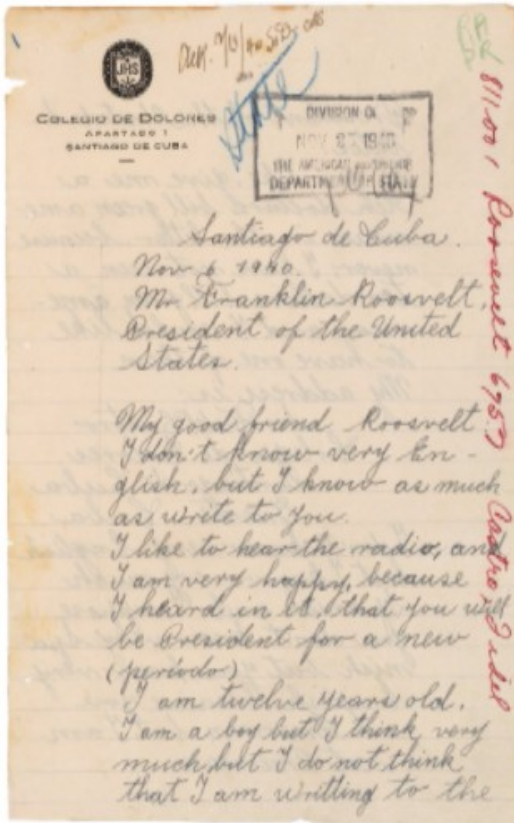 JHS
COLEGIO DE DOLORES
APARTADO 1
SANTIAGO DE CUBA
State
DIVISION OF
NOV 27 1940
THE AMERICAN
DEPARTMENT OF STATE
811.001 Roosevelt 6757 Castro, Fidel
Santiago de Cuba.
Nov 6 1940.
Mr Franklin Roosvelt,
President of the United
States.
My good friend Roosvelt
I don't know very En-
glish, but I know as much
as write to you.
I like to hear the radio, and
I am very happy, because
I heard in it, that you will
be President for a new
(periodo)
I am twelve years old.
I am a boy but I think very
much, but I do not think
that I am writting to the